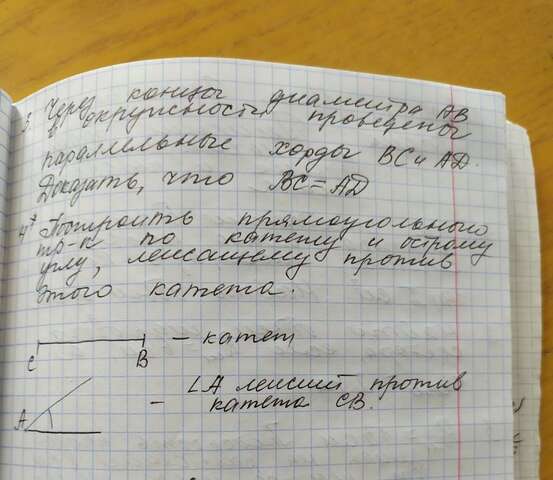 3. Через концы диаметра AB
в окружности проведены
параллельные хорды BC и AD.
Доказать, что BC = AD
4* Построить прямоугольного
тр-к по катету и острому
углу, лежащему против
этого катета.
C B - катет
A - ∠A лежит против
катета CB.